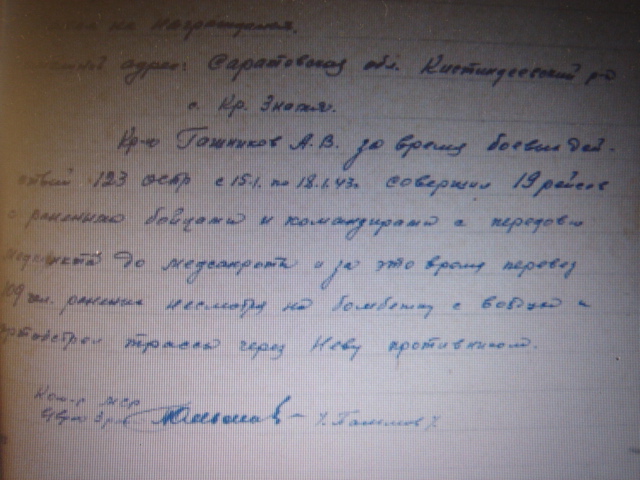 на награждался.
адрес: Саратовская обл. Кистендеевский р-о
с. Кр. Знамя.
Кр-ц Гашников А.В. за время боевых дей-
ствий 123 осбр с 15.1. по 18.1.43г совершил 19 рейсов
с ранеными бойцами и командирами с передовых
медпункта до медсанроты и за это время перевез
109 чел. раненых несмотря на бомбежку с воздуха и
артобстрел трассы через Неву противником.
Ком-р мср